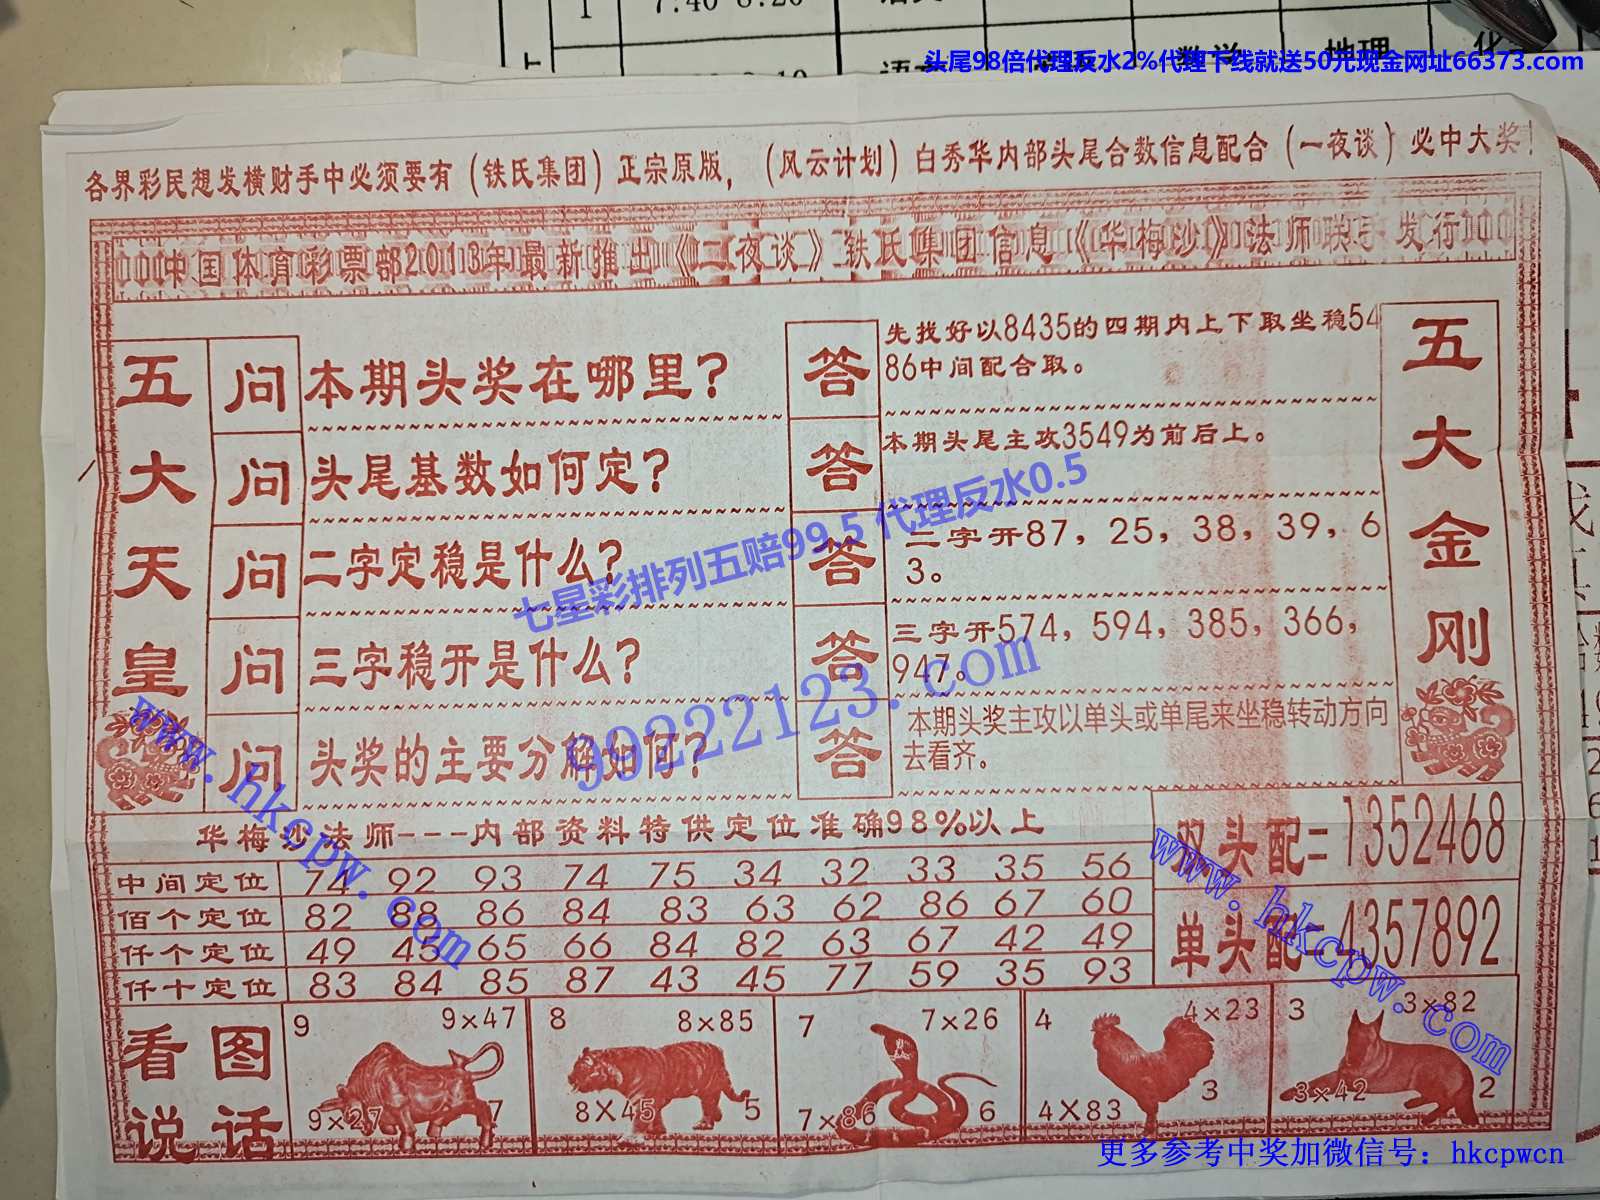 1 7:40-8:20
上
数学 地理
头尾98倍代理反水2%代理下线就送50元现金网址66373.com
各界彩民想发横财手中必须要有（铁氏集团）正宗原版，（风云计划）白秀华内部头尾合数信息配合（一夜谈）必中大奖！
中国体育彩票部2013年最新推出《二夜谈》铁氏集团信息《华梅沙》法师联手发行
五大天皇
问 本期头奖在哪里？
答 先找好以8435的四期内上下取坐稳54
86中间配合取。
问 头尾基数如何定？
答 本期头尾主攻3549为前后上。
问 二字定稳是什么？
答 二字开87，25，38，39，6
3。
问 三字稳开是什么？
答 三字开574，594，385，366，
947。
问 头奖的主要分解如何？
答 本期头奖主攻以单头或单尾来坐稳转动方向
去看齐。
五大金刚
七星彩排列五赔99.5 代理反水0.5
99222123.com
www.hkcpw.com
华梅沙法师---内部资料特供定位准确98%以上
中间定位 74 92 93 74 75 34 32 33 35 56
佰个定位 82 88 86 84 83 63 62 86 67 60
仟个定位 49 45 65 66 84 82 63 67 42 49
仟十定位 83 84 85 87 43 45 77 59 35 93
双头配=1352468
单头配=4357892
www.hkcpw.com
看图
说话
9 9×47
9×27 7
8 8×85
8×45 5
7 7×26
7×86 6
4 4×23
4×83 3
3 3×82
3×42 2
更多参考中奖加微信号：hkcpwcn